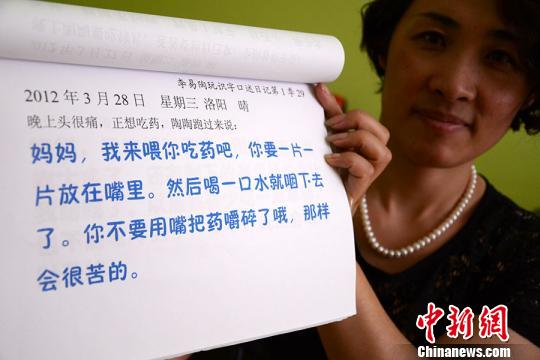 李易陶玩识字口述日记第1季29
2012年3月28日 星期三 洛阳 晴
晚上头很痛，正想吃药，陶陶跑过来说：
妈妈，我来喂你吃药吧，你要一片一
片放在嘴里。然后喝一口水就咽下去
了。你不要用嘴把药嚼碎了哦，那样
会很苦的。
中新网
Chinanews.com